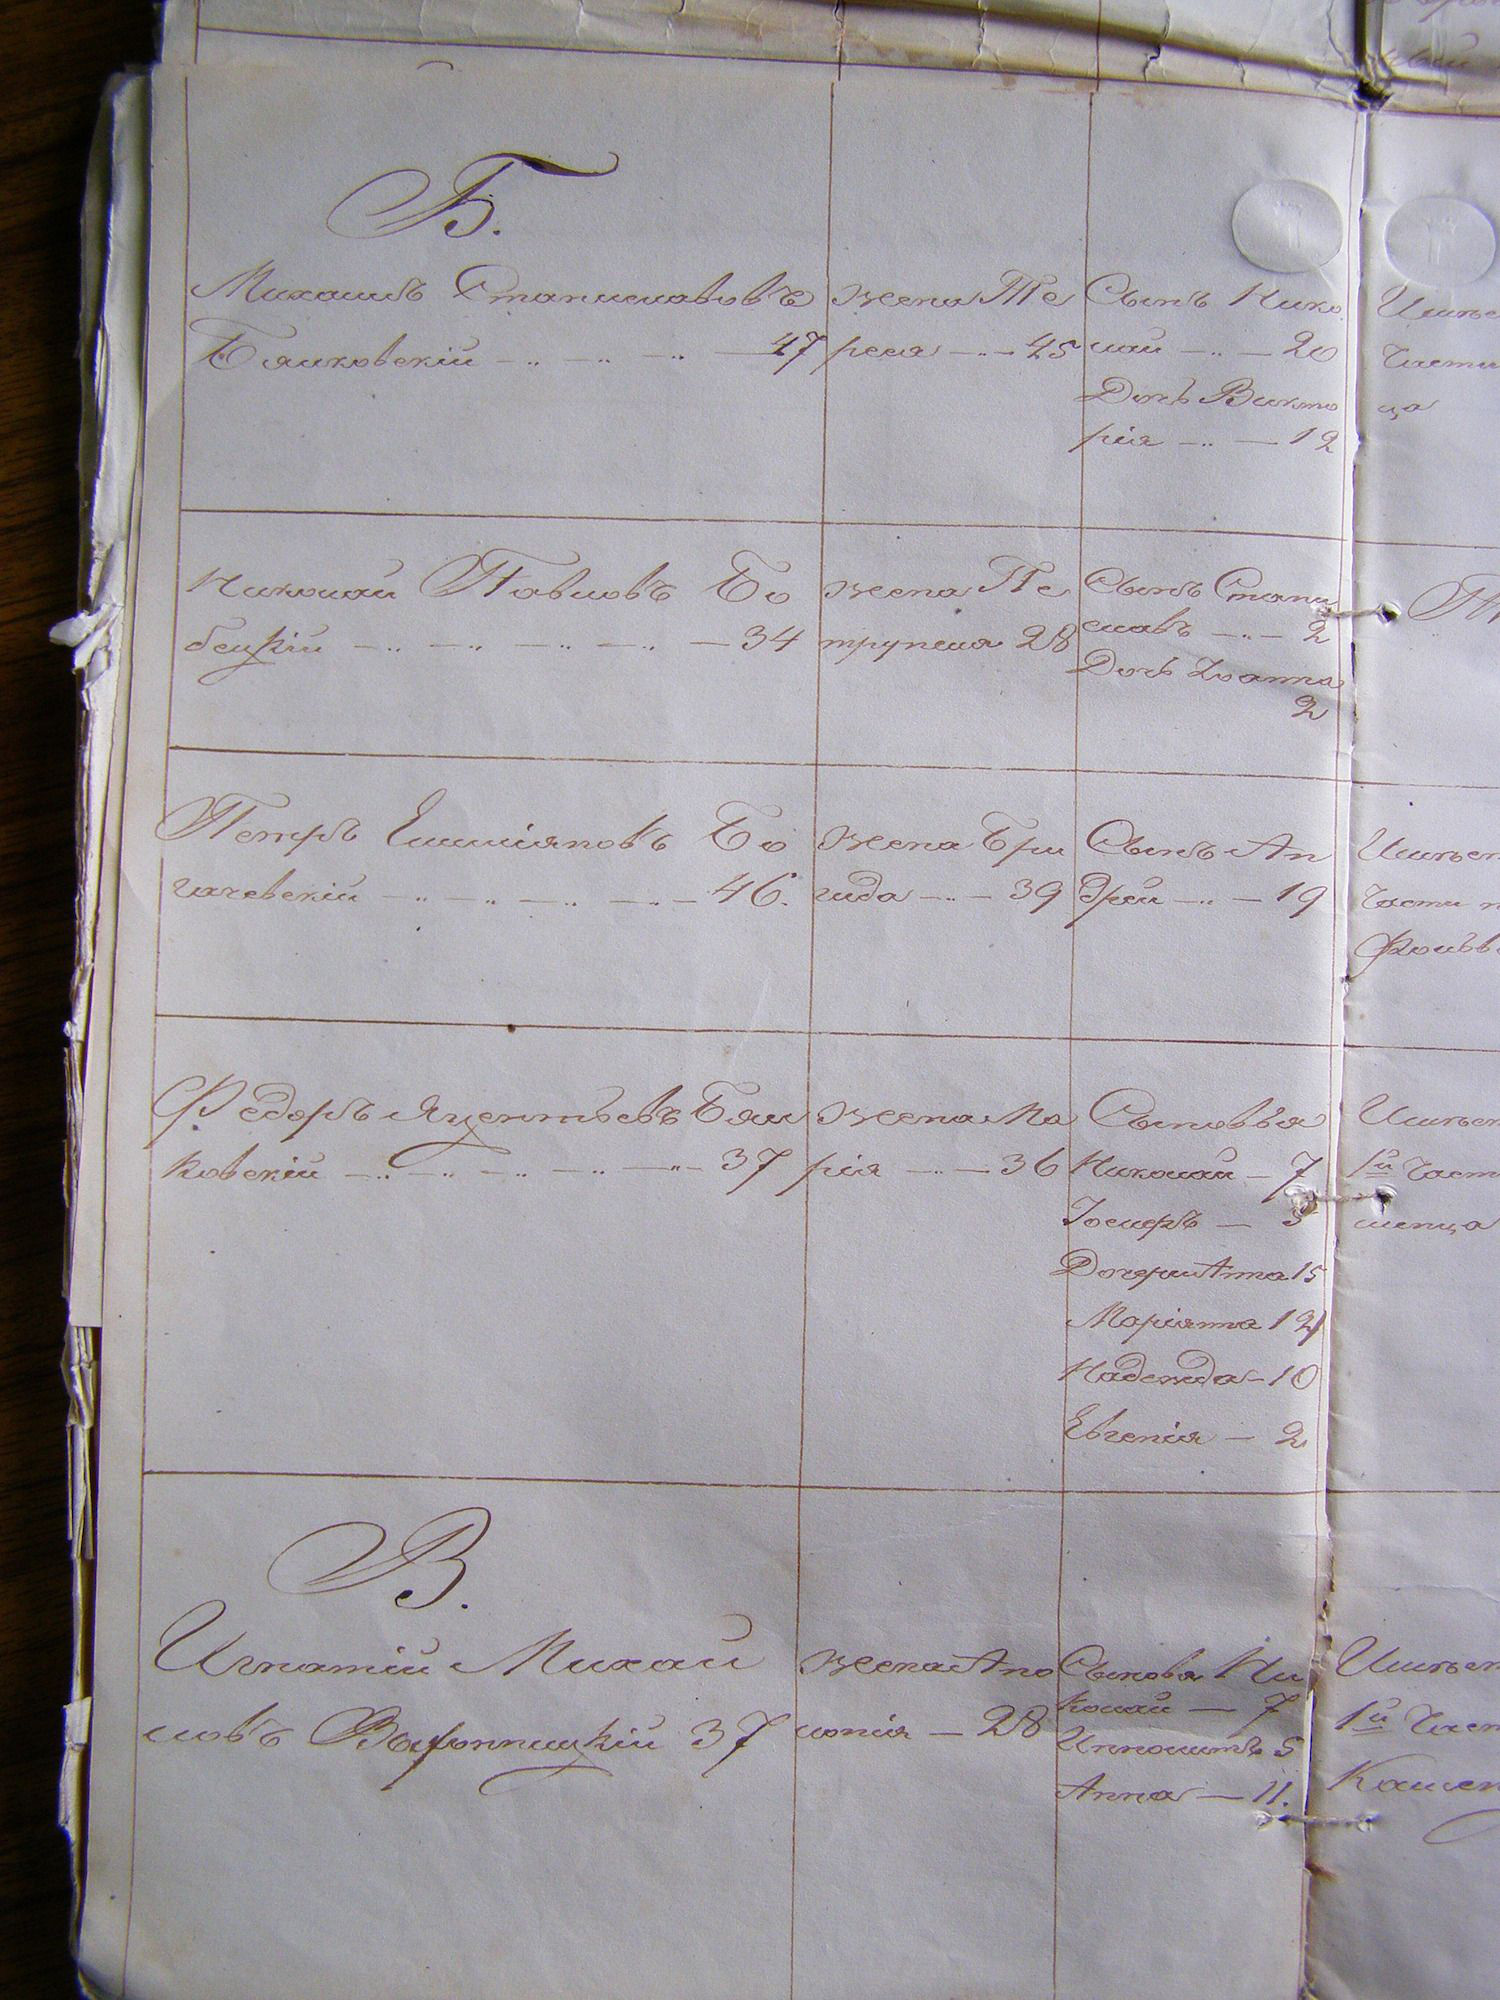 Б.
Михаилъ Станиславовъ
Бялковскій 47
жена Те
реса 45
Сынъ Нико
лай 20
Дочь Викто
рія 12
Имѣ
Части
ца
Николай Павловъ Бо
бецкій 34
жена Пе
трунеля 28
Сынъ Стани
славъ 2
Дочь Іоанна
2
Петръ Емиліяновъ Бо
гачевскій 46.
жена Бри
гида 39
Сынъ Ан
дрей 19
Имѣн
Части
Фольв
Федоръ Яцентьевъ Бял
ковскій 37
жена Ма
рія 36
Сыновья
Николай 7
Іосифъ 5
Дочери Анна 15
Маріянна 12
Надежда 10
Евгенія 2
Имѣн
1й Част
В.
Игнатій Михай
ловъ 37
жена Апо
лонія 28
Сыновя Ни
колай 7
Ипполитъ 5
Анна 11.
Имѣн
1й Част
Камен